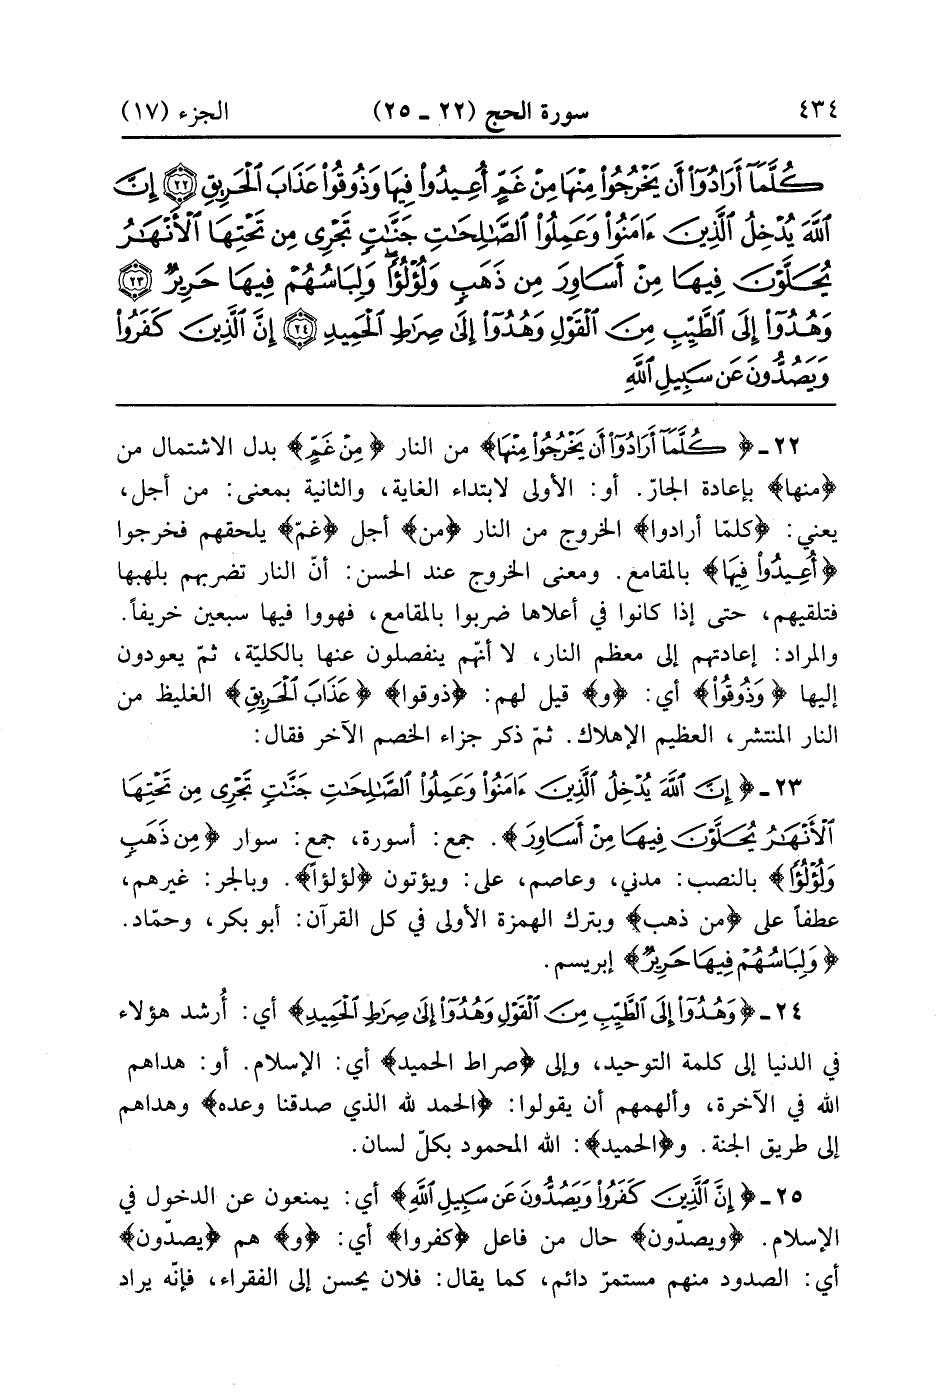 ٤٣٤ سورة الحج (٢٢ ـ ٢٥) الجزء (١٧)
كُلَّمَآ أَرَادُوٓاْ أَن يَخْرُجُواْ مِنْهَا مِنْ غَمٍّ أُعِيدُواْ فِيهَا وَذُوقُواْ عَذَابَ ٱلْحَرِيقِ ٢٢ إِنَّ
ٱللَّهَ يُدْخِلُ ٱلَّذِينَ ءَامَنُواْ وَعَمِلُواْ ٱلصَّٰلِحَٰتِ جَنَّٰتٍ تَجْرِى مِن تَحْتِهَا ٱلْأَنْهَٰرُ
يُحَلَّوْنَ فِيهَا مِنْ أَسَاوِرَ مِن ذَهَبٍ وَلُؤْلُؤًا ۖ وَلِبَاسُهُمْ فِيهَا حَرِيرٌ ٢٣
وَهُدُوٓاْ إِلَى ٱلطَّيِّبِ مِنَ ٱلْقَوْلِ وَهُدُوٓاْ إِلَىٰ صِرَٰطِ ٱلْحَمِيدِ ٢٤ إِنَّ ٱلَّذِينَ كَفَرُواْ
وَيَصُدُّونَ عَن سَبِيلِ ٱللَّهِ
٢٢ ـ ﴿كُلَّمَآ أَرَادُوٓاْ أَن يَخْرُجُواْ مِنْهَا﴾ من النار ﴿مِنْ غَمٍّ﴾ بدل الاشتمال من
﴿منها﴾ بإعادة الجارّ. أو: الأولى لابتداء الغاية، والثانية بمعنى: من أجل،
يعني: ﴿كلمّا أرادوا﴾ الخروج من النار ﴿من﴾ أجل ﴿غمّ﴾ يلحقهم فخرجوا
﴿أُعِيدُواْ فِيهَا﴾ بالمقامع. ومعنى الخروج عند الحسن: أنّ النار تضربهم بلهبها
فتلقيهم، حتى إذا كانوا في أعلاها ضربوا بالمقامع، فهووا فيها سبعين خريفاً.
والمراد: إعادتهم إلى معظم النار، لا أنهّم ينفصلون عنها بالكليّة، ثمّ يعودون
إليها ﴿وَذُوقُواْ﴾ أي: ﴿و﴾ قيل لهم: ﴿ذوقوا﴾ ﴿عَذَابَ ٱلْحَرِيقِ﴾ الغليظ من
النار المنتشر، العظيم الإهلاك. ثمّ ذكر جزاء الخصم الآخر فقال:
٢٣ ـ ﴿إِنَّ ٱللَّهَ يُدْخِلُ ٱلَّذِينَ ءَامَنُواْ وَعَمِلُواْ ٱلصَّٰلِحَٰتِ جَنَّٰتٍ تَجْرِى مِن تَحْتِهَا
ٱلْأَنْهَٰرُ يُحَلَّوْنَ فِيهَا مِنْ أَسَاوِرَ﴾. جمع: أسورة، جمع: سوار ﴿مِن ذَهَبٍ
وَلُؤْلُؤًا﴾ بالنصب: مدني، وعاصم، على: ويؤتون ﴿لؤلؤاً﴾. وبالجر: غيرهم،
عطفاً على ﴿من ذهب﴾ وبترك الهمزة الأولى في كل القرآن: أبو بكر، وحمّاد.
﴿وَلِبَاسُهُمْ فِيهَا حَرِيرٌ﴾ إبريسم.
٢٤ ـ ﴿وَهُدُوٓاْ إِلَى ٱلطَّيِّبِ مِنَ ٱلْقَوْلِ وَهُدُوٓاْ إِلَىٰ صِرَٰطِ ٱلْحَمِيدِ﴾ أي: أُرشد هؤلاء
في الدنيا إلى كلمة التوحيد، وإلى ﴿صراط الحميد﴾ أي: الإسلام. أو: هداهم
الله في الآخرة، وألهمهم أن يقولوا: ﴿الحمد لله الذي صدقنا وعده﴾ وهداهم
إلى طريق الجنة. و﴿الحميد﴾: الله المحمود بكلّ لسان.
٢٥ ـ ﴿إِنَّ ٱلَّذِينَ كَفَرُواْ وَيَصُدُّونَ عَن سَبِيلِ ٱللَّهِ﴾ أي: يمنعون عن الدخول في
الإسلام. ﴿ويصدّون﴾ حال من فاعل ﴿كفروا﴾ أي: ﴿و﴾ هم ﴿يصدّون﴾
أي: الصدود منهم مستمرّ دائم، كما يقال: فلان يحسن إلى الفقراء، فإنّه يراد